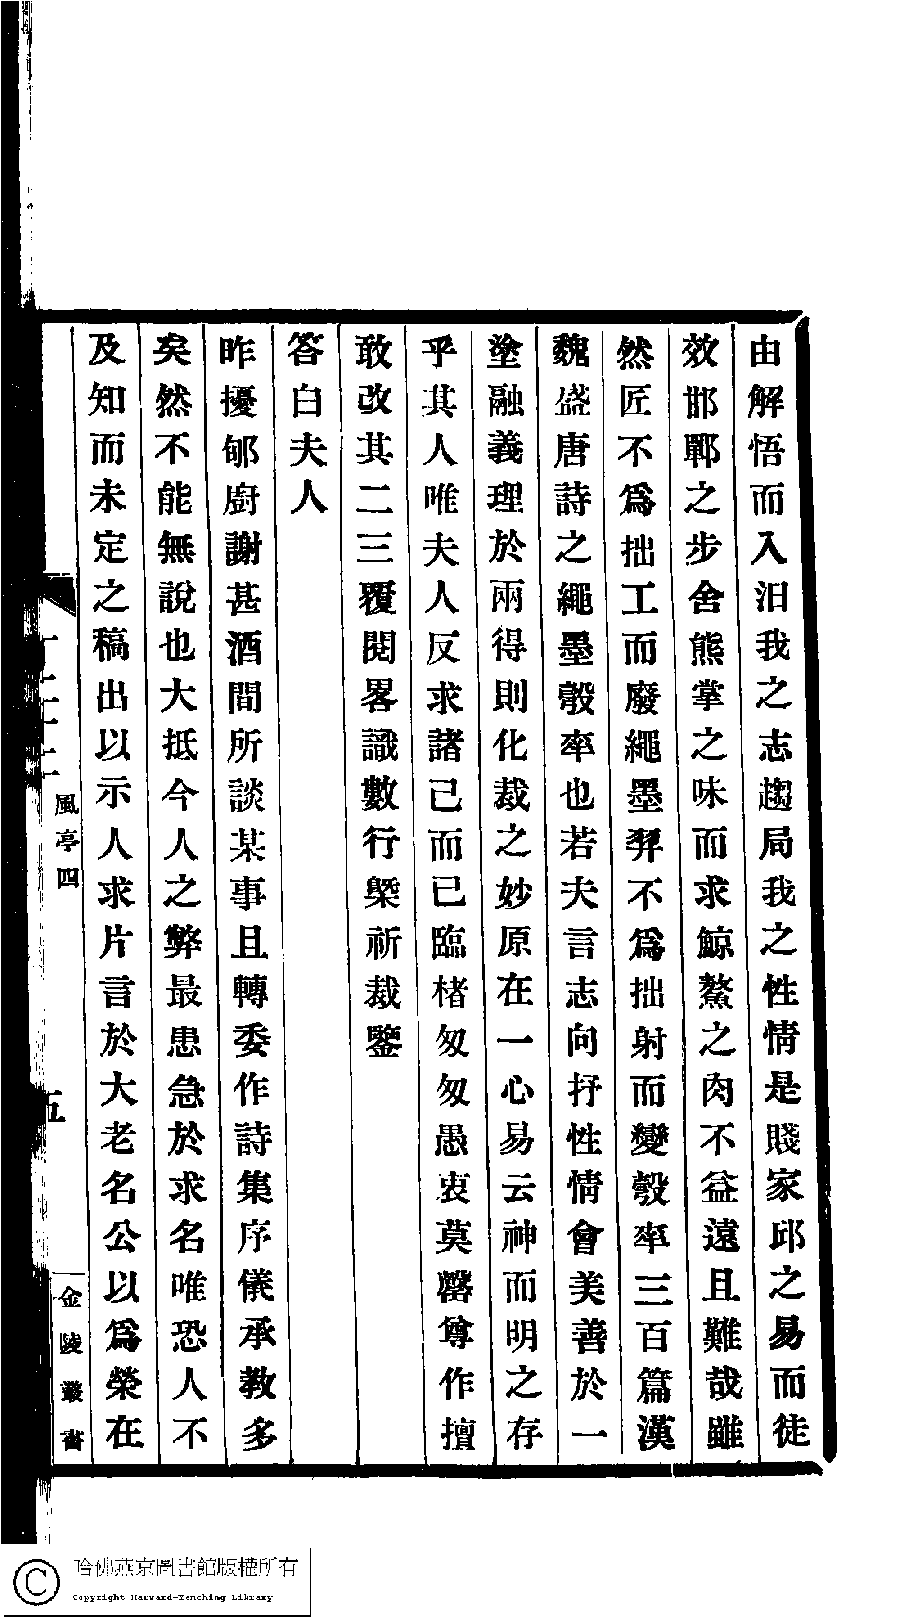 由解悟而入汨我之志趨局我之性情是賤家邱之易而徒
效邯鄲之步舍熊掌之味而求鯨鰲之肉不益遠且難哉雖
然匠不爲拙工而廢繩墨羿不爲拙射而變彀率三百篇漢
魏盛唐詩之繩墨彀率也若夫言志向抒性情會美善於一
塗融義理於兩得則化裁之妙原在一心易云神而明之存
乎其人唯夫人反求諸己而已臨楮匆匆愚衷莫罄尊作擅
敢改其二三覆閱畧識數行槩祈裁鑒
答白夫人
昨擾郇廚謝甚酒間所談某事且轉委作詩集序儀承教多
矣然不能無說也大抵今人之弊最患急於求名唯恐人不
及知而未定之稿出以示人求片言於大老名公以爲榮在
風亭四
五
金陵叢書
哈佛燕京圖書館版權所有
Copyright Harvard-Yenching Library